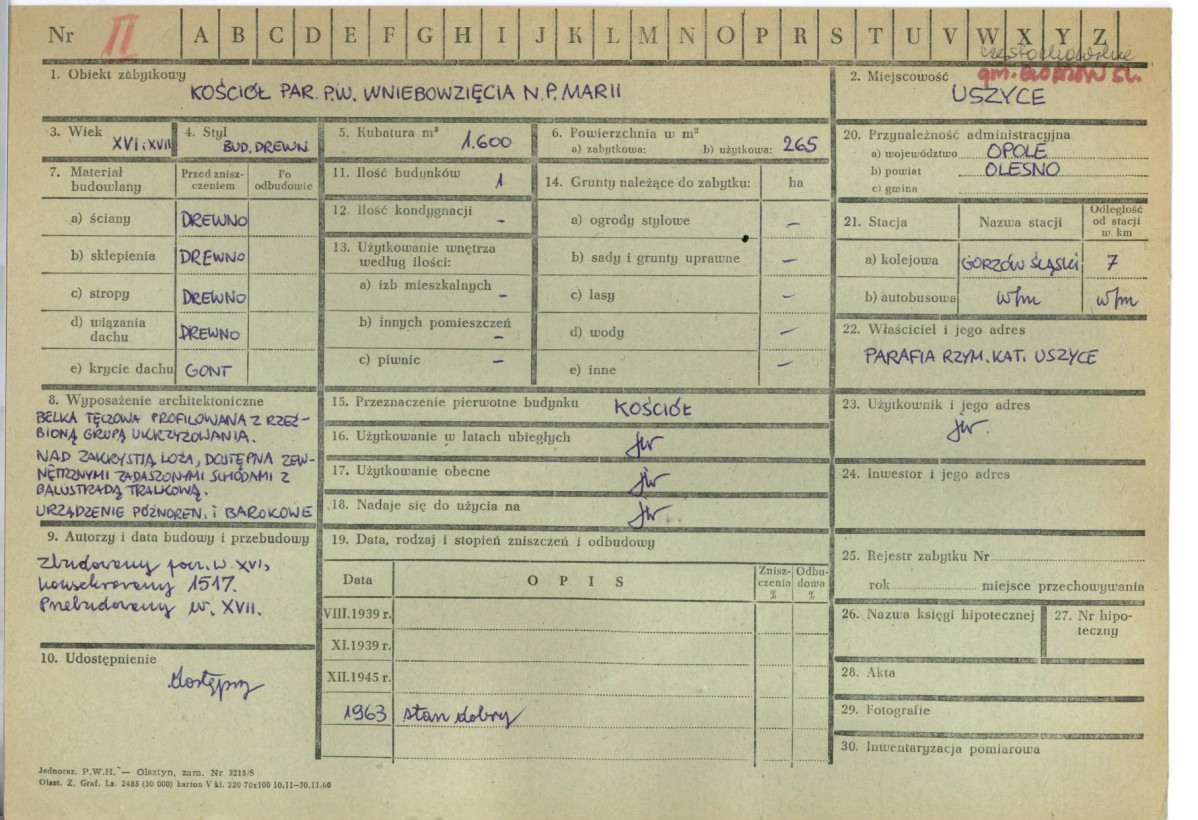 Nr II A B C D E F G H I J K L M N O P R S T U V W X Y Z
częstochowskie
gm. GORZÓW ŚL.
1. Obiekt zabytkowy
KOŚCIÓŁ PAR. P.W. WNIEBOWZIĘCIA N.P. MARII
2. Miejscowość
USZYCE
3. Wiek
XVI i XVII
4. Styl
BUD. DREWN
5. Kubatura m³
1.600
6. Powierzchnia w m²
a) zabytkowa: b) użytkowa: 265
7. Materiał budowlany
Przed znisz-
czeniem
Po
odbudowie
a) ściany DREWNO
b) sklepienia DREWNO
c) stropy DREWNO
d) wiązania
dachu DREWNO
e) krycie dachu GONT
8. Wyposażenie architektoniczne
BELKA TĘCZOWA PROFILOWANA Z RZEŹ-
BIONĄ GRUPĄ UKRZYŻOWANIA.
NAD ZAKRYSTIĄ LOŻA, DOSTĘPNA ZEW-
NĘTRZNYMI ZADASZONYMI SCHODAMI Z
BALUSTRADĄ TRALKOWĄ.
URZĄDZENIE PÓŹNOREN. I BAROKOWE
9. Autorzy i data budowy i przebudowy
Zbudowany pocz. w. XVI,
konsekrowany 1517.
Przebudowany w. XVII.
10. Udostępnienie
dostępny
11. Ilość budynków 1
12. Ilość kondygnacji -
13. Użytkowanie wnętrza
według ilości:
a) izb mieszkalnych -
b) innych pomieszczeń -
c) piwnic -
14. Grunty należące do zabytku: ha
a) ogrody stylowe -
b) sady i grunty uprawne -
c) lasy -
d) wody -
e) inne -
15. Przeznaczenie pierwotne budynku KOŚCIÓŁ
16. Użytkowanie w latach ubiegłych jw
17. Użytkowanie obecne jw
18. Nadaje się do użycia na jw
19. Data, rodzaj i stopień zniszczeń i odbudowy
Data OPIS
Znisz-
czenia
%
Odbu-
dowa
%
VIII.1939 r.
XI.1939 r.
XII.1945 r.
1963 stan dobry
20. Przynależność administracyjna
a) województwo OPOLE
b) powiat OLESNO
c) gmina
21. Stacja Nazwa stacji
Odległość
od stacji
w km
a) kolejowa GORZÓW ŚLĄSKI 7
b) autobusowa w/m w/m
22. Właściciel i jego adres
PARAFIA RZYM. KAT. USZYCE
23. Użytkownik i jego adres
jw.
24. Inwestor i jego adres
25. Rejestr zabytku Nr
rok miejsce przechowywania
26. Nazwa księgi hipotecznej
27. Nr hipo-
teczny
28. Akta
29. Fotografie
30. Inwentaryzacja pomiarowa
Jednoraz. P.W.H. — Olsztyn, zam. Nr 3215/S
Olszt. Z. Graf. Lz. 2485 (30 000) karton V kl. 220 70x100 10.11—30.11.60